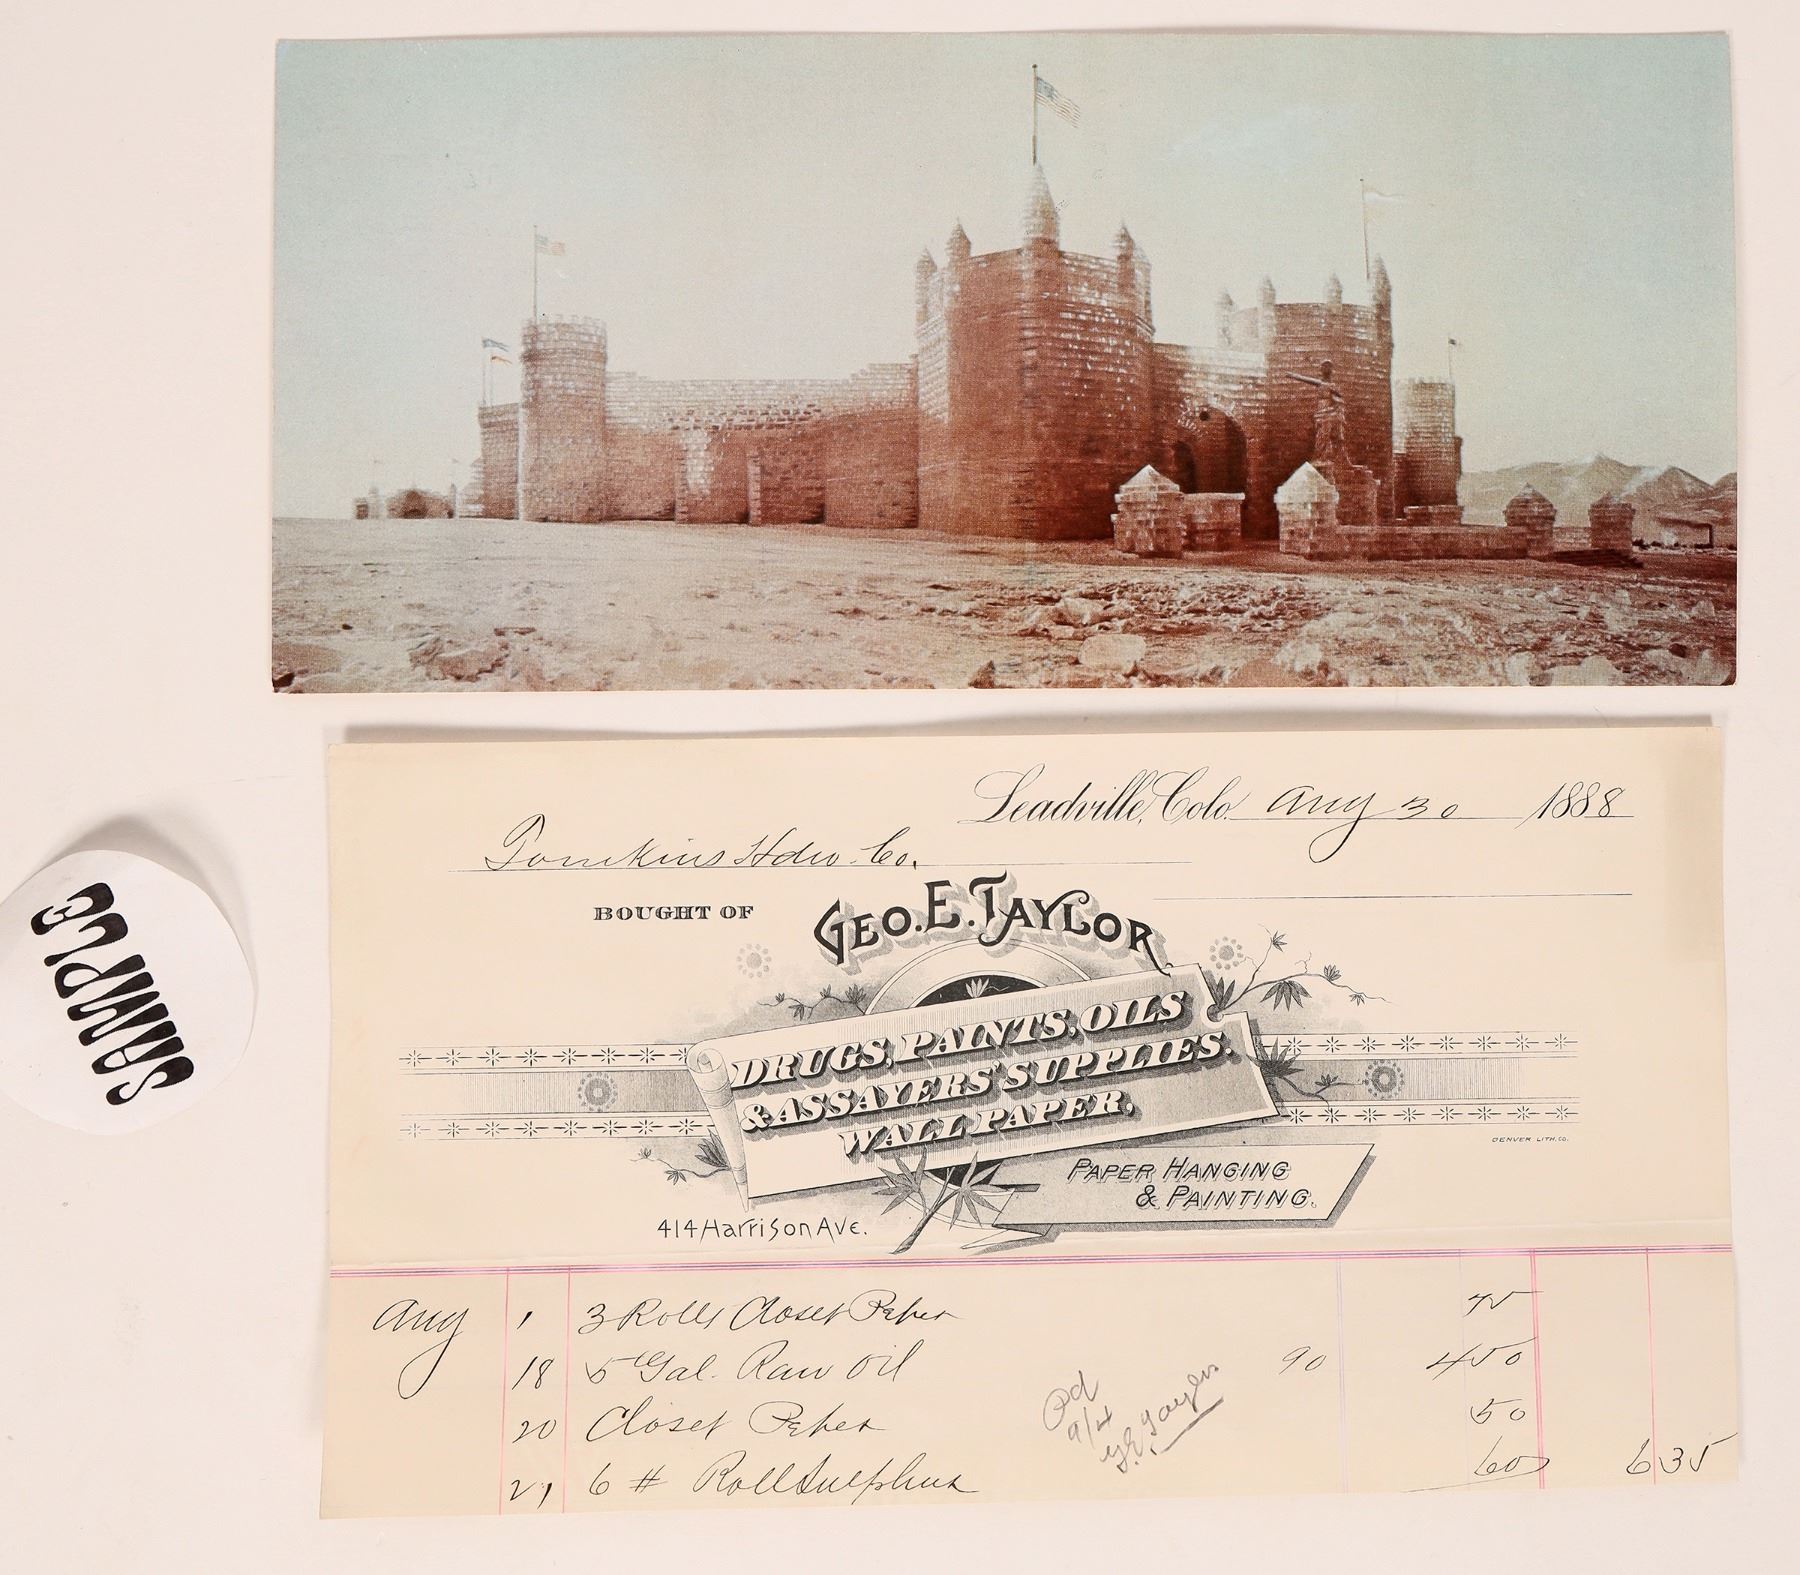 SAMPLE
Leadville, Colo. Aug 30 1888
Tomkins Hdw. Co.
BOUGHT OF
GEO. E. TAYLOR
DRUGS, PAINTS, OILS
& ASSAYERS' SUPPLIES.
WALL PAPER,
DENVER LITH. CO.
PAPER HANGING
& PAINTING.
414 Harrison Ave.
Aug 1 3 Rolls Closet Paper 75
18 5 Gal. Raw Oil 90 450
20 Closet Paper 50
21 6 # Roll Sulphur 60 635
Pd
9/4
G.E. Taylor